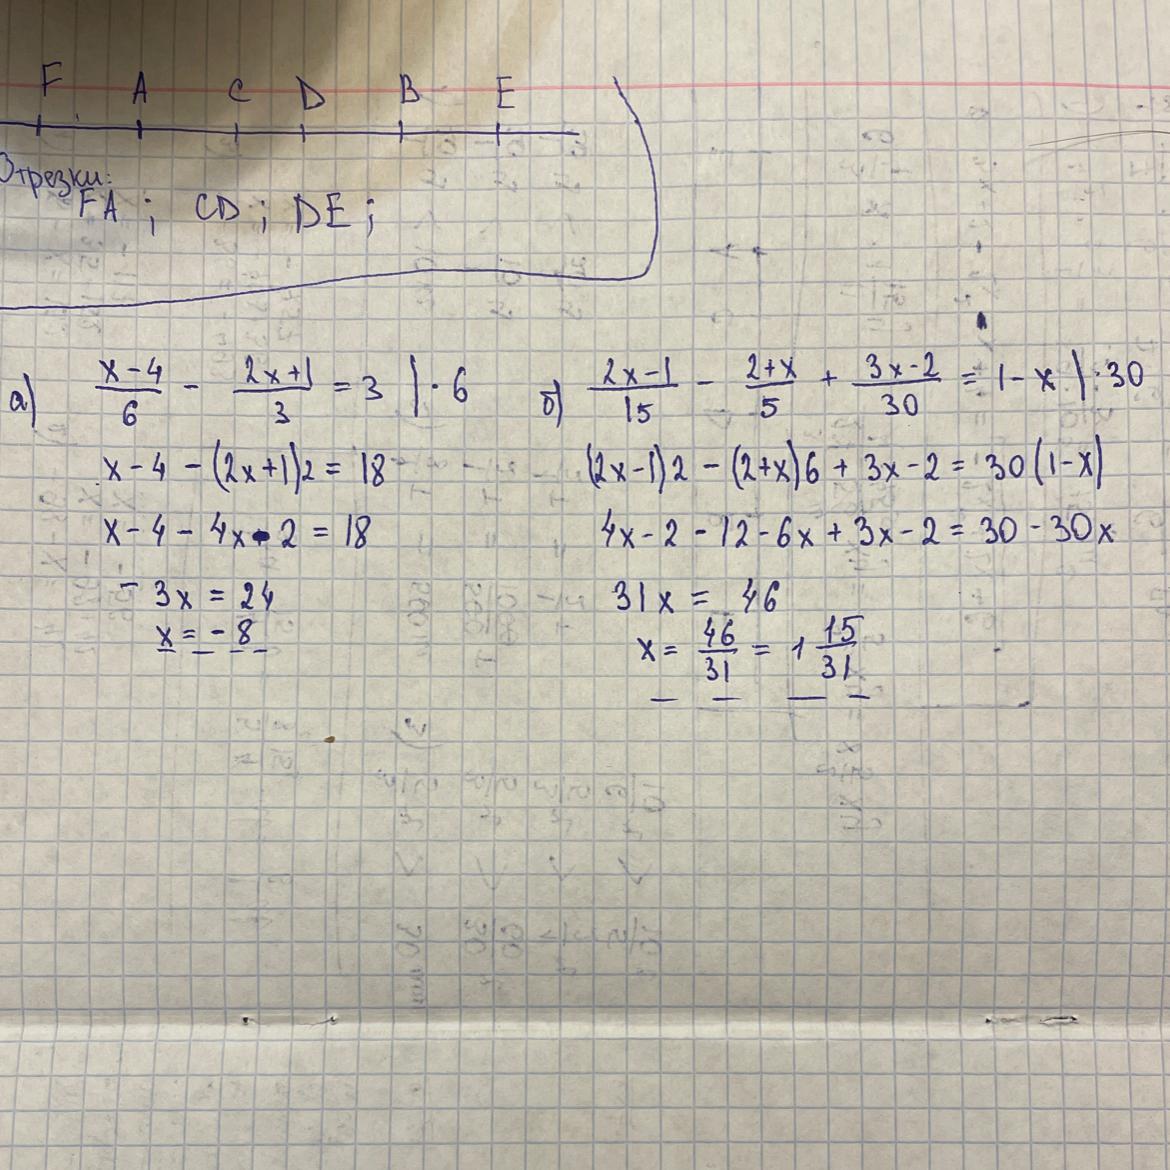 F A C D B E
Отрезки:
FA ; CD ; DE ;
а) \frac{x-4}{6} - \frac{2x+1}{3} = 3 | · 6
x - 4 - (2x+1)2 = 18
x - 4 - 4x - 2 = 18
- 3x = 24
x = - 8
б) \frac{2x-1}{15} - \frac{2+x}{5} + \frac{3x-2}{30} = 1 - x | · 30
(2x-1)2 - (2+x)6 + 3x - 2 = 30(1-x)
4x - 2 - 12 - 6x + 3x - 2 = 30 - 30x
31x = 46
x = \frac{46}{31} = 1 \frac{15}{31}